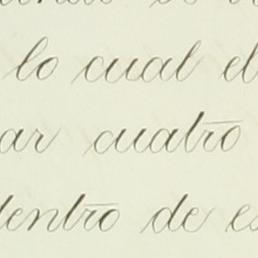 lo cual el
ar cuatro
dentro de es